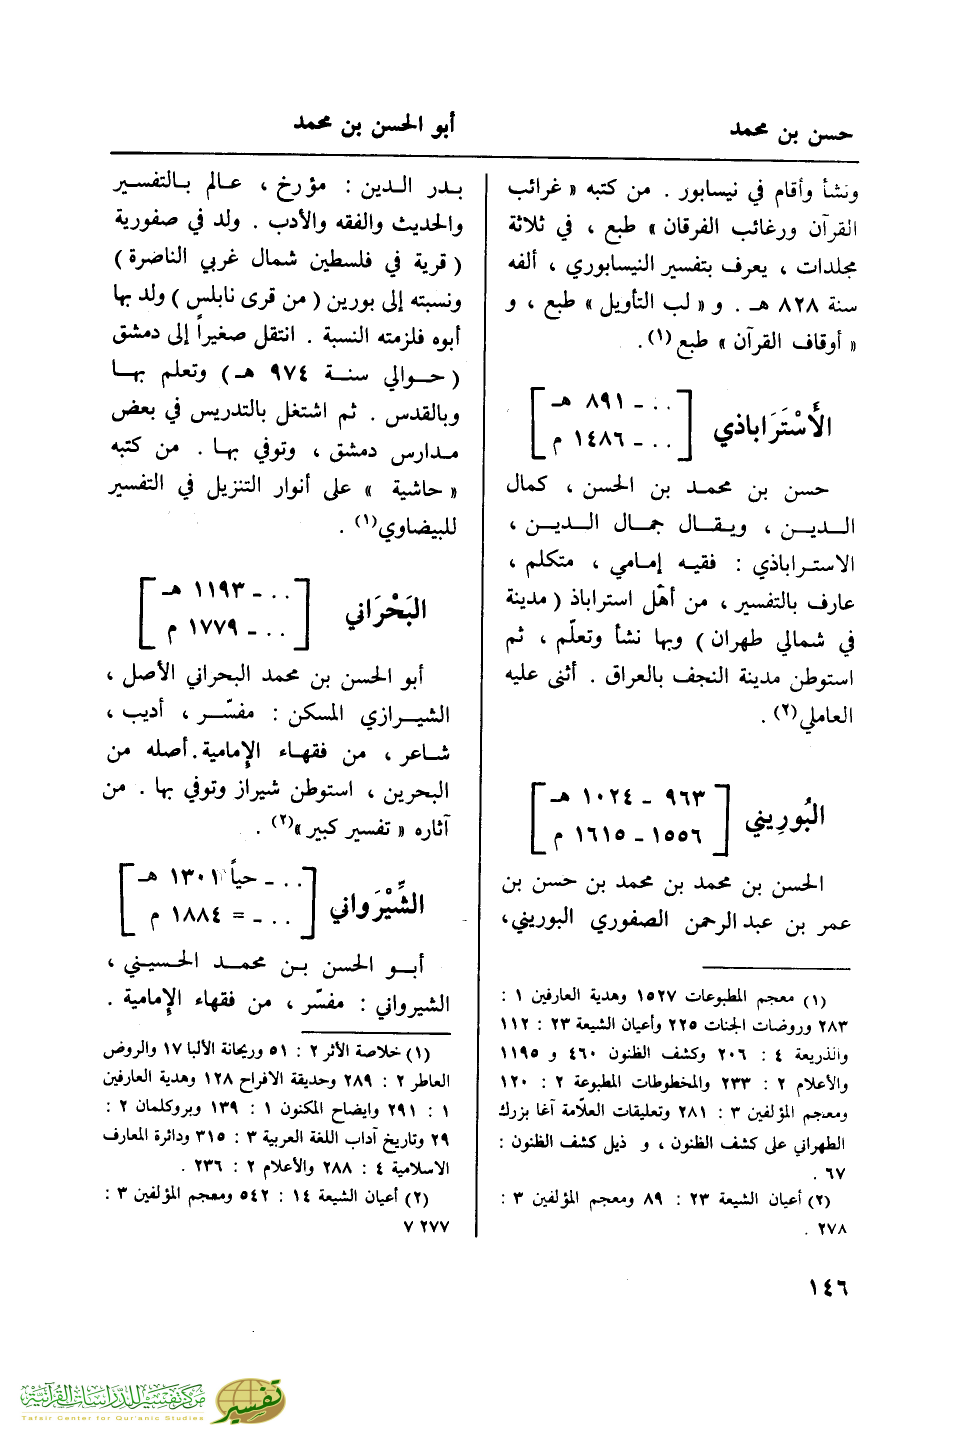 حسن بن محمد
أبو الحسن بن محمد
ونشأ وأقام في نيسابور . من كتبه « غرائب
القرآن ورغائب الفرقان » طبع ، في ثلاثة
مجلدات ، يعرف بتفسير النيسابوري ، ألفه
سنة ٨٢٨ هـ . و « لب التأويل » طبع ، و
« أوقاف القرآن » طبع (١).
الأَسْتَرَاباذي
[ . . ـ ٨٩١ هـ
. . ـ ١٤٨٦ م ]
حسن بن محمد بن الحسن ، كمال
الدين ، ويقال جمال الدين ،
الاستراباذي : فقيه إمامي ، متكلم ،
عارف بالتفسير ، من أهل استراباذ ( مدينة
في شمالي طهران ) وبها نشأ وتعلّم ، ثم
استوطن مدينة النجف بالعراق . أثنى عليه
العاملي (٢) .
البُورِيني
[ ٩٦٣ ـ ١٠٢٤ هـ
١٥٥٦ ـ ١٦١٥ م ]
الحسن بن محمد بن محمد بن حسن بن
عمر بن عبد الرحمن الصفوري البوريني،
(١) معجم المطبوعات ١٥٢٧ وهدية العارفين ١ :
٢٨٣ وروضات الجنات ٢٢٥ وأعيان الشيعة ٢٣ : ١١٢
والذريعة ٤ : ٢٠٦ وكشف الظنون ٤٦٠ و ١١٩٥
والأعلام ٢ : ٢٣٣ والمخطوطات المطبوعة ٢ : ١٢٠
ومعجم المؤلفين ٣ : ٢٨١ وتعليقات العلاّمة آغا بزرك
الطهراني على كشف الظنون ، و ذيل كشف الظنون :
٦٧ .
(٢) أعيان الشيعة ٢٣ : ٨٩ ومعجم المؤلفين ٣ :
٢٧٨ .
بدر الدين : مؤرخ ، عالم بالتفسير
والحديث والفقه والأدب . ولد في صفورية
( قرية في فلسطين شمال غربي الناصرة )
ونسبته إلى بورين ( من قرى نابلس ) ولد بها
أبوه فلزمته النسبة . انتقل صغيراً إلى دمشق
( حوالي سنة ٩٧٤ هـ ) وتعلم بها
وبالقدس . ثم اشتغل بالتدريس في بعض
مدارس دمشق ، وتوفي بها . من كتبه
« حاشية » على أنوار التنزيل في التفسير
للبيضاوي (١) .
البَحْرَاني
[ . . ـ ١١٩٣ هـ
. . ـ ١٧٧٩ م ]
أبو الحسن بن محمد البحراني الأصل ،
الشيرازي المسكن : مفسّر ، أديب ،
شاعر ، من فقهاء الإمامية. أصله من
البحرين ، استوطن شيراز وتوفي بها . من
آثاره « تفسير كبير » (٢) .
الشِّيْرَواني
[ . . ـ حياً ١٣٠١ هـ
. . ـ = ١٨٨٤ م ]
أبو الحسن بن محمد الحسيني ،
الشيرواني : مفسّر ، من فقهاء الإمامية .
(١) خلاصة الأثر ٢ : ٥١ وريحانة الألبا ١٧ والروض
العاطر ٢ : ٢٨٩ وحديقة الافراح ١٢٨ وهدية العارفين
١ : ٢٩١ وايضاح المكنون ١ : ١٣٩ وبروكلمان ٢ :
٢٩ وتاريخ آداب اللغة العربية ٣ : ٣١٥ ودائرة المعارف
الاسلامية ٤ : ٢٨٨ والأعلام ٢ : ٢٣٦ .
(٢) أعيان الشيعة ١٤ : ٥٤٢ ومعجم المؤلفين ٣ :
٢٧٧ ٧
١٤٦
مركز تفسير للدراسات القرآنية
Tafsir Center for Qur'anic Studies
تفسير